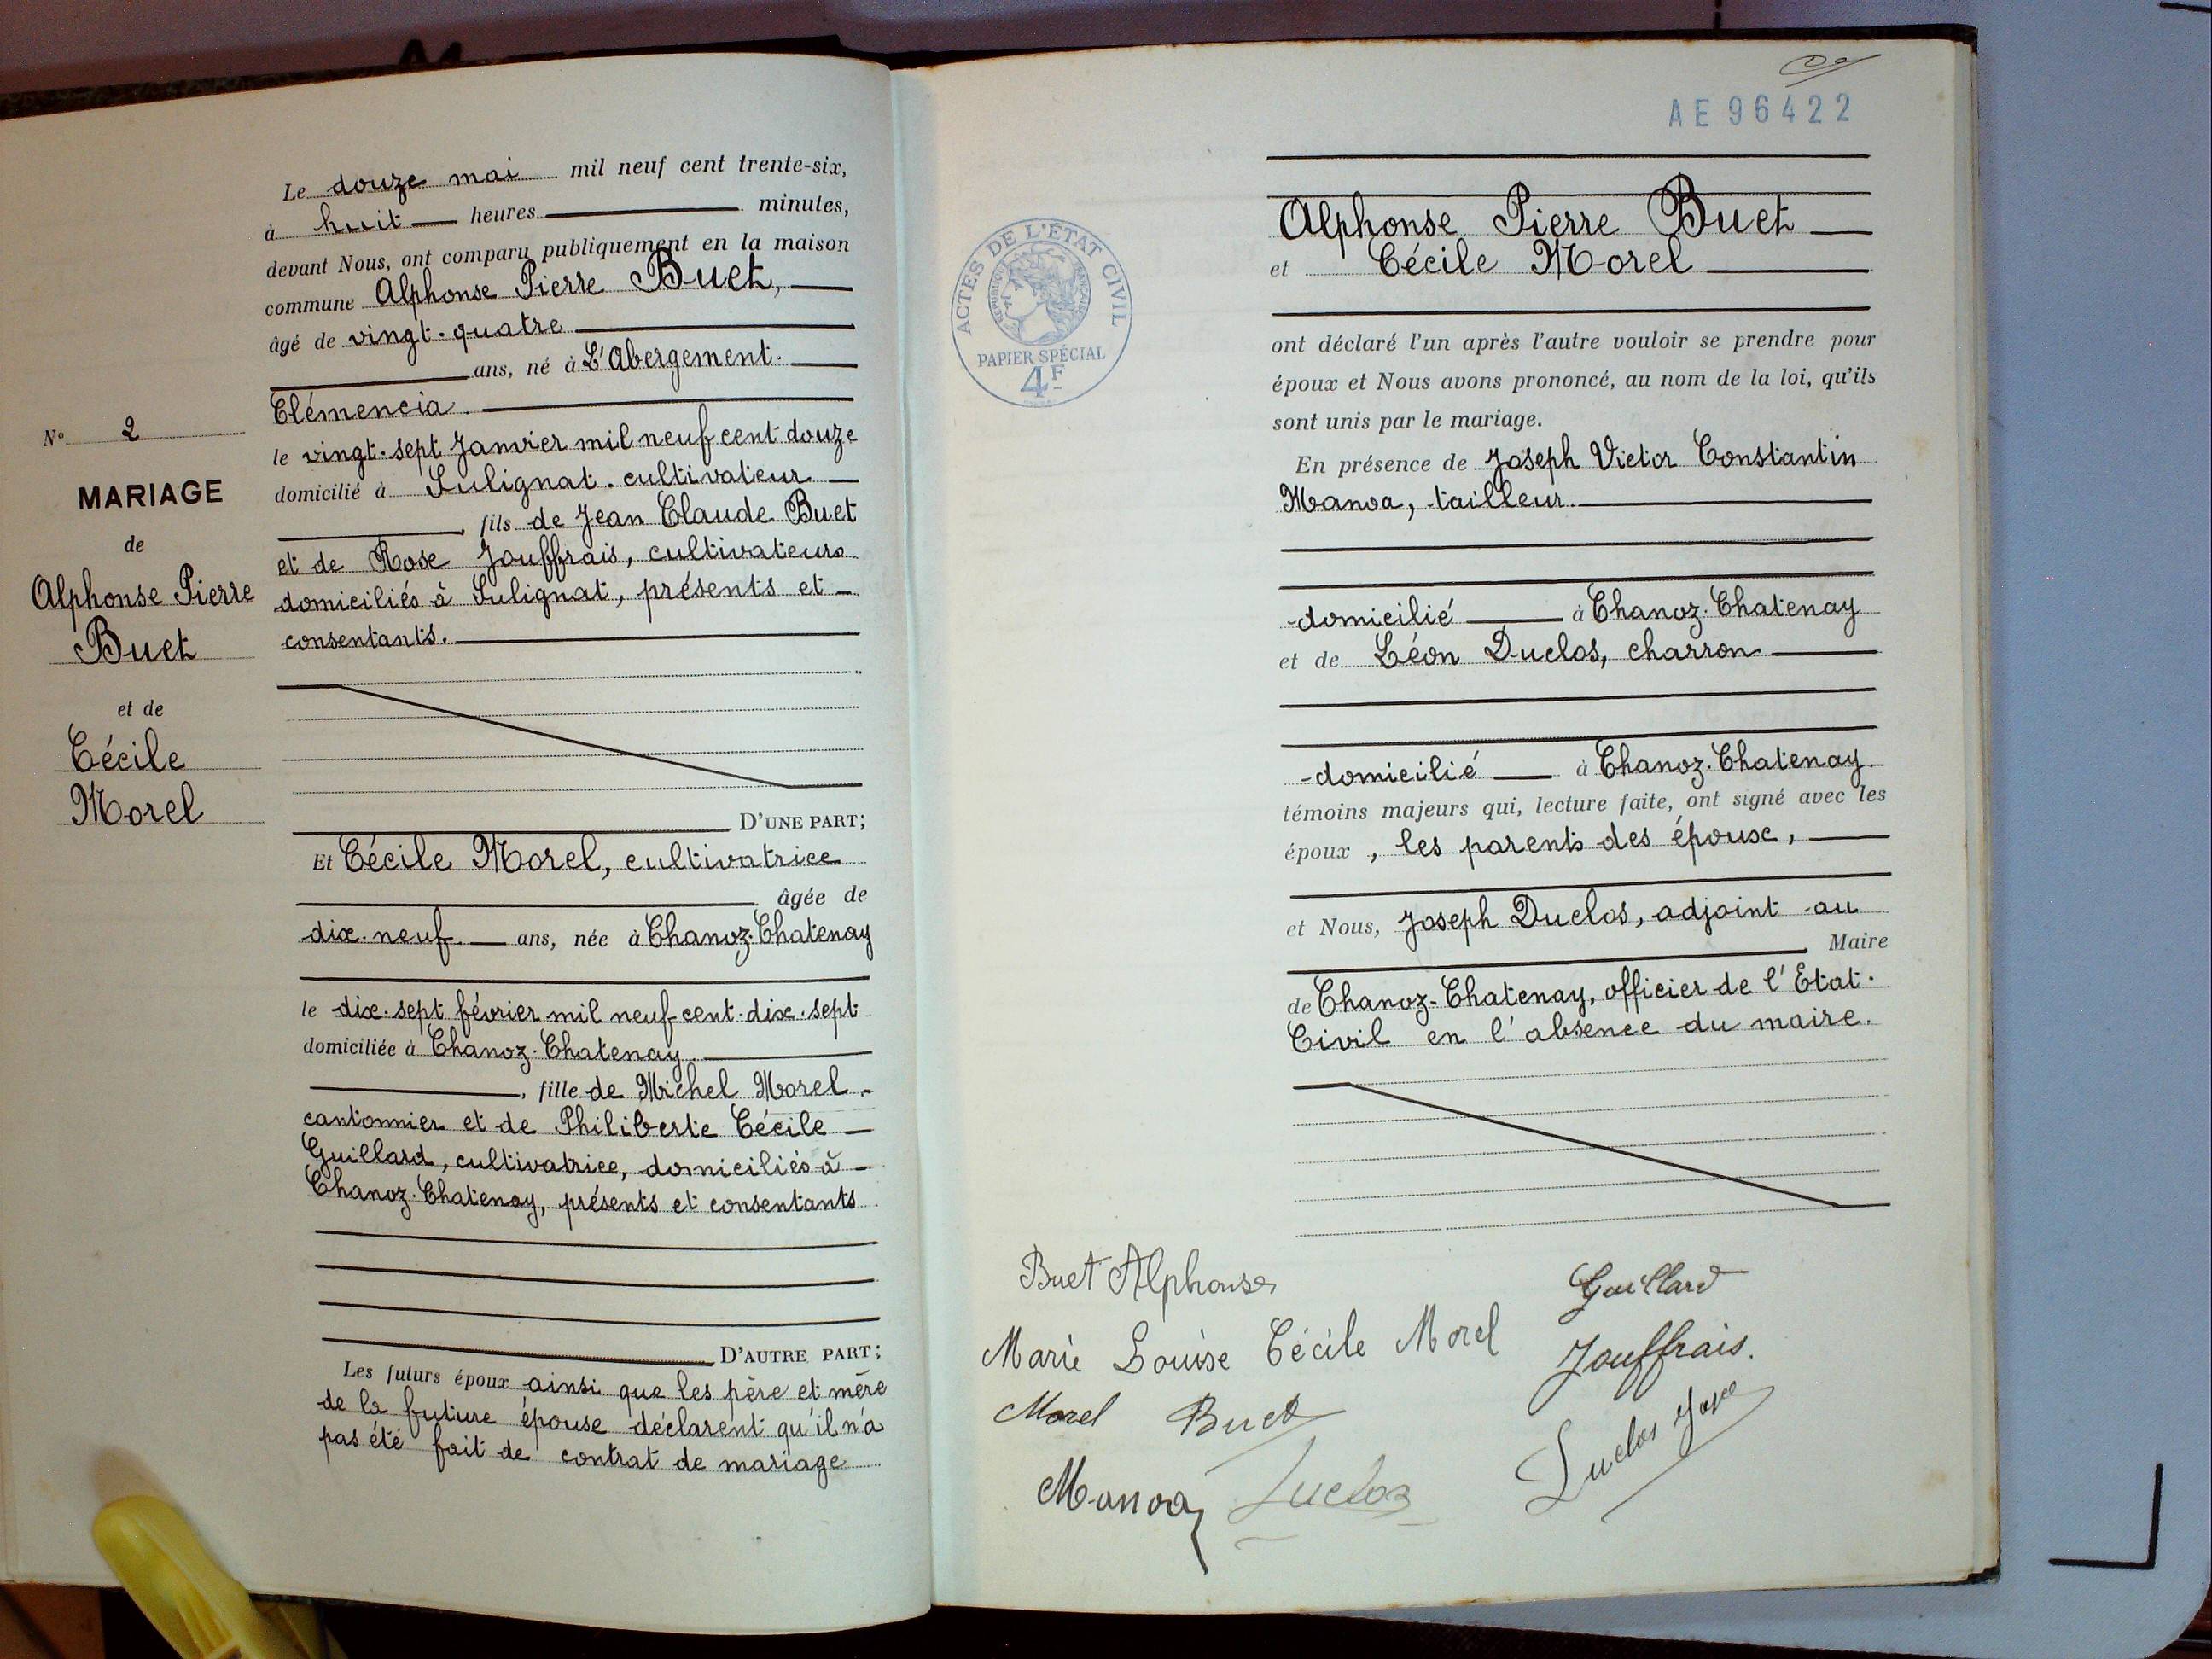 N° 2
MARIAGE
de
Alphonse Pierre
Buet
et de
Cécile
Morel
Le douze mai mil neuf cent trente-six,
à huit heures minutes,
devant Nous, ont comparu publiquement en la maison
commune Alphonse Pierre Buet,
âgé de vingt-quatre
ans, né à L'Abergement-
Clémencia.
le vingt-sept Janvier mil neuf cent douze
domicilié à Sulignat. cultivateur
, fils de Jean Claude Buet
et de Rose Jouffrais, cultivateurs
domiciliés à Sulignat, présents et
consentants.
D'UNE PART;
Et Cécile Morel, cultivatrice
âgée de
dix-neuf ans, née à Chanoz-Chatenay
le dix-sept février mil neuf cent-dix-sept
domiciliée à Chanoz-Chatenay.
, fille de Michel Morel
cantonnier et de Philiberte Cécile
Guillard, cultivatrice, domiciliés à
Chanoz-Chatenay, présents et consentants
D'AUTRE PART;
Les futurs époux ainsi que les père et mère
de la future épouse déclarent qu'il n'a
pas été fait de contrat de mariage
AE96422
ACTES DE L'ÉTAT CIVIL
RÉPUBLIQUE FRANÇAISE
PAPIER SPÉCIAL
4F
Alphonse Pierre Buet
et Cécile Morel
ont déclaré l'un après l'autre vouloir se prendre pour
époux et Nous avons prononcé, au nom de la loi, qu'ils
sont unis par le mariage.
En présence de Joseph Victor Constantin
Manoa, tailleur.
domicilié à Chanoz-Chatenay
et de Léon Duclos, charron
domicilié à Chanoz-Chatenay.
témoins majeurs qui, lecture faite, ont signé avec les
époux, les parents des époux,
et Nous, Joseph Duclos, adjoint au
Maire
de Chanoz-Chatenay, officier de l'Etat-
Civil en l'absence du maire.
Buet Alphonse
Guillard
Marie Louise Cécile Morel
Jouffrais.
Morel Buet
Duclos
Manoa Duclos